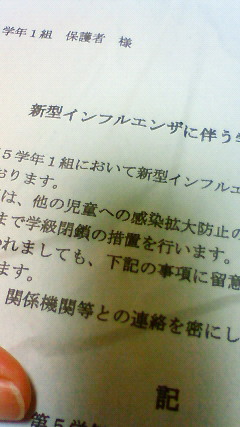 学年1組 保護者 様
新型インフルエンザに伴う
5学年1組において新型インフルエ
おります。
は、他の児童への感染拡大防止の
まで学級閉鎖の措置を行います。
われましても、下記の事項に留意
ます。
関係機関等との連絡を密にし
記
第5学